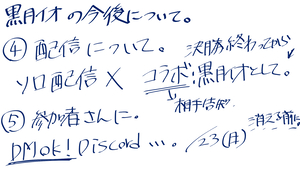 黒月イオの今後について。
④ 配信について。 決勝終わってから
ソロ配信 X コラボ:黒月イオとして。
↓相手信頼
⑤ 参加者さんに。
DMok! Discord…。 /23(月) 消える前に